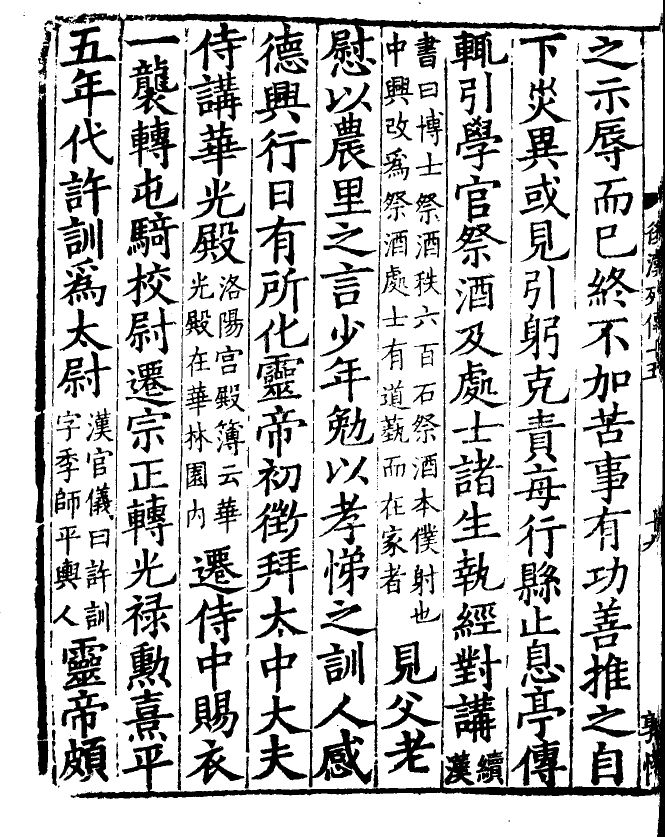 後漢列傳十五
之示辱而已終不加苦事有功善推之自
下災異或見引躬克責每行縣止息亭傳
輒引學官祭酒及處士諸生執經對講續漢
書曰博士祭酒秩六百石祭酒本僕射也
中興改爲祭酒處士有道藝而在家者
見父老
慰以農里之言少年勉以孝悌之訓人感
德興行日有所化靈帝初徵拜太中大夫
侍講華光殿
洛陽宮殿簿云華
光殿在華林園内
遷侍中賜衣
一襲轉屯騎校尉遷宗正轉光禄勳熹平
五年代許訓爲太尉
漢官儀曰許訓
字季師平輿人
靈帝頗